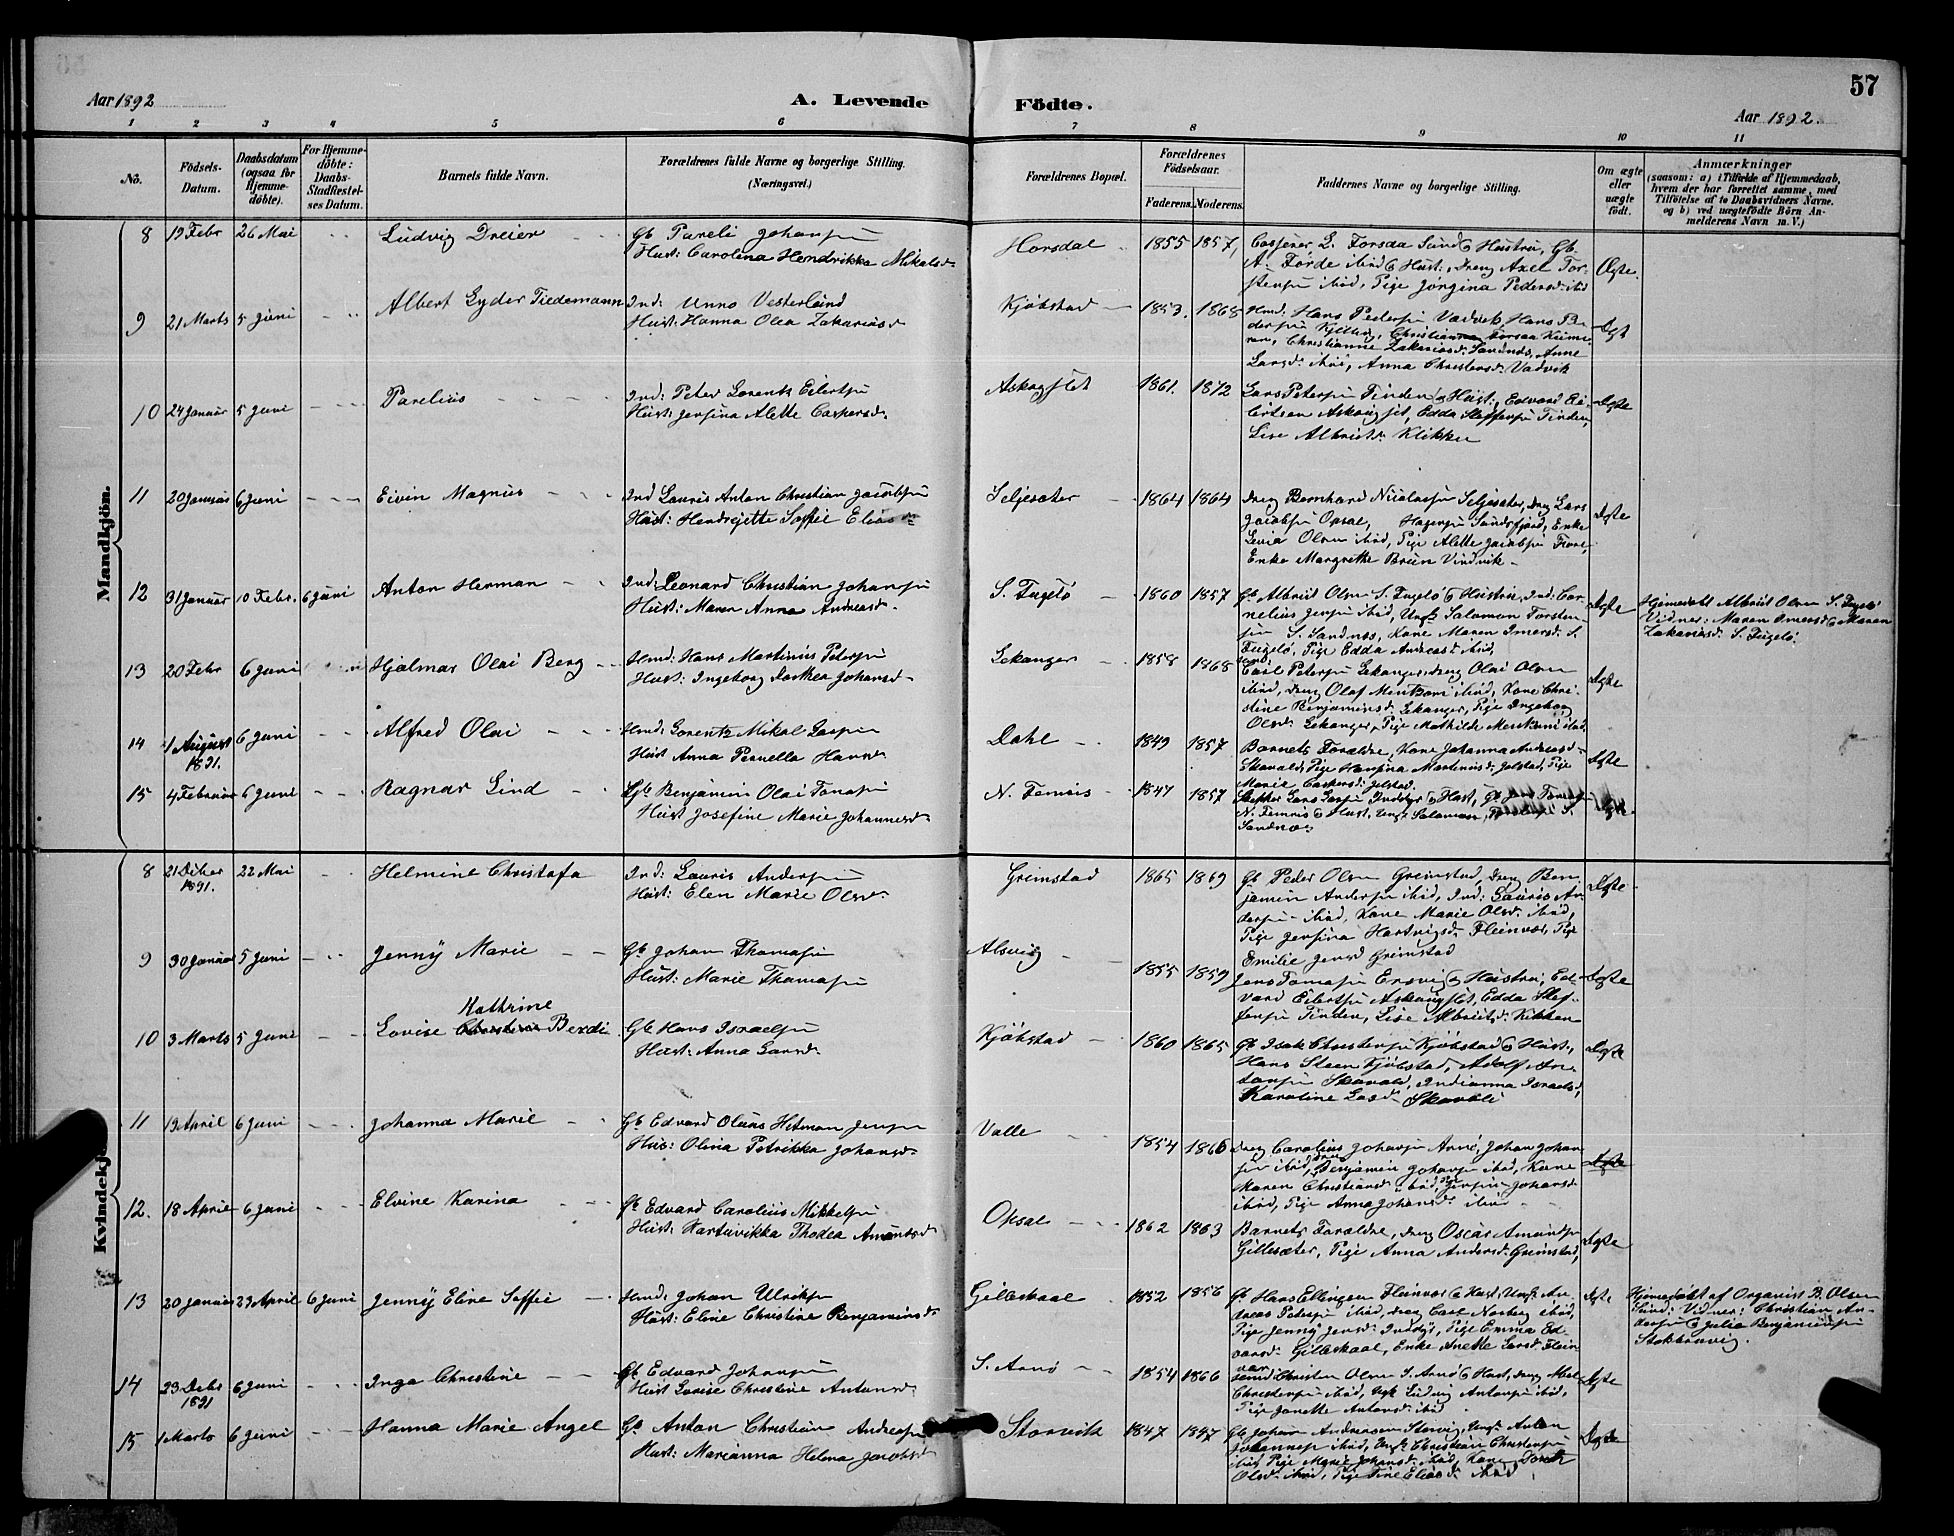 57
Aar 1892
A. Levende Födte.
Aar 1892.
1 2 3 4 5 6 7 8 9 10 11
No.
Födsels-Datum.
Daabsdatum (ogsaa for Hjemme-döbte).
For Hjemme-döbte: Daabs-Stadfæstel-ses Datum.
Barnets fulde Navn.
Forældrenes fulde Navne og borgerlige Stilling. (Næringsvei.)
Forældrenes Bopæl.
Forældrenes Födselsaar.
Faderens. Moderens.
Faddernes Navne og borgerlige Stilling.
Om ægte eller uægte födt.
Anmærkninger
(saasom: a) i Tilfælde af Hjemmedaab, hvem der har forrettet samme, med Tilföielse af to Daabsvidners Navne. og b) ved uægtefödte Börn An-melderens Navn m. V.)
Mandkjön.
8 19 Febr 26 Mai Ludvig Dreier Gb Pareli Johansen
Hust: Carolina Hendrikka Mikalsd.
Horsdal 1855 1857
A. Förde ibid & Hust:, Dreng Axel Tor-
stensen ibid, Pige Jørgina Pedersd: ibid
Ægte.
9 21 Marts 5 Juni Albert Gyder Tiedemann Ind: Unno Vesterlund
Hust: Hanna Olea Zakariasd
Kjöbstad 1853. 1868
Hmd: Hans Pedersen Vadvik, Hans Pe-
Larsd: ibid, Anna Christensd: Vadvik
Ægt
10 24 Januar 5 Juni Parelius Ind: Peter Lorents Eilertsen
Hust: Jensina Alette Caspersd.
1861. 1872
Lars Petersen Tinden & Hust:, Edvard Ei-
lertsen Askougfjet, Edda Steffensen Tinden,
Lise Albrictsd: Klikken
Ægte
11 20 Januar 6 Juni Eivin Magnus Ind Lauris Anton Christian Jacobsen
Hust: Hendrejette Soffie Eliasd
Seljesæter 1864 1864
Dreng Bernhard Nicolaisen Seljesæter, Dreng Lars
Jacobsen Opsal, Hagensen Sundsfjord, Enke
Levia Olsen ibid, Pige Alette Jacobsen
Enke Margrethe Bruun Vindvik
Ægte
12 31 Januar 10 Febr. 6 Juni Anton Herman Ind: Leonard Christian Johansen
Hust: Maren Anna Andreasd.
S. Fugelö 1860 1857
Gb Albrict Olsen S. Fugelö & Hustru, Ind: Cor-
nelius Jensen ibid, Ungk Salomon Torsten-
sen S. Sandnes, Kone Maren Imersd: S.
Fugelö, Pige Edda Andreasd: ibid,
Ægte
Hjemedöbt Albrict Olsen S. Fugelö
Vidner: Maren Imersd & Maren
Zakariasd: S. Fugelö.
13 20 Febr 6 Juni Hjalmar Olai Berg Hmd: Hans Martinus Petersen
Hust: Ingeborg Dorthea Johansd
Lekanger 1858 1868
Carl Petersen Lekanger, Dreng Olai Olsen
ibid, Dreng Olaf Mentzoni ibid, Kone Chri-
stine Benjaminsd: Lekanger, Pige Ingeborg
Olsd: Lekanger, Pige Mathilde Mentzoni ibid
Ægte
14 1 August 1891. 6 Juni Alfred Olai Hmd: Lorentz Mikal
Hust Anna Pernella Hansd.
Dahl 1849 1857
Barnets Forældre, Kone Johanna Andreasd
Skavald, Pige Hansina Martinusd: Jelstad, Pige
Marie Caspersd: Jelstad.
Ægte
15 4 Februar 6 Juni Ragnar Lind Gb Benjamin Olai Tomasen
Hust Josefine Marie Johannesd.
N. Femris 1847 1857
N. Femris & Hust, Ungk Salomon S.
Sandnes
Ægte
Kvindekj
8 21 Dcber 1891. 22 Mai Helmine Christofa Ind: Lauris Andersen
Hust: Elen Marie Olsd.
Grimstad 1865 1869
Gb Peder Olsen Grimstad, Dreng Ben-
jamin Andersen ibid, Ind: Lauris An-
dersen ibid, Kone Marie Olsd: ibid,
Pige Jensina Hartvigsd: Fleinvær, Pige
Emilie Jensd Grimstad
Ægte
9 30 Januar 5 Juni Jenny Marie Gb Johan Thomasen
Hust: Marie Thomasen
Alsvig 1855 1859
Jens Tomasen Ersvig & Hustru, Ed-
vard Eilertsen Askougfjet, Edda Stef-
fensen Tinden, Lise Albrictsd: Kikken
Ægte
10 3 Marts 5 Juni Lovise Christine Kathrine Berdi Gb Hans Israelsen
Hust: Anna Larsd.
Kjöbstad 1860 1865
Gb Isak Christensen Kjöbstad & Hust,
Hans Steen Kjöbstad, Adolf An-
tonsen Skavald, Indianna Israelsd,
Karoline Larsd
Ægte
11 19 April 6 Juni Johanna Marie Gb Edvard Olaus Hitman Jensen
Hus: Olina Petrikka Johansd.
Valle 1854 1866
Dreng Carolius Johansen Arnö, Johan Johan-
sen ibid, Dreng Benjamin Johansen ibid, Kone
Maren Christiansd ibid, Pige Jensine Johansd
ibid, Pige Anna Johansd: ibid
Ægte
12. 18 April 6 Juni Elvine Karina Gb Edvard Carolius Mikkelsen
Hust: Hartuvikka Thodea Amundsd.
Opsal 1862 1863
Barnets Forældre, Dreng Oscar Amundsen
Gillesæter, Pige Anna Andersd: Grimstad,
Ægte
13 20 Januar 23 April 6 Juni Jenny Eline Soffie Hmd: Johan Ulriksen
Hust: Eline Christine Benjaminsd.
Gilleskaal 1852 1856
Gb Hans Ellingsen Fleinvær & Hust, Ungk An-
dreas Petersen ibid, Dreng Carl Norberg ibid,
Pige Jenny Jensd: Inddyr, Pige Emma Ed-
vardsd: Gilleskaal, Enke Anette Larsd: Flein
vær
Ægte
Hjemedöbt af Organist B. Olsen
Sund: Vidner: Christian An-
dersen & Julia Benjaminsen
Stokkervig.
14 23 Decbr 1891 6 Juni Inga Christine Gb Edvard Johansen
Hust Lovise Christine Antonsd.
S. Arnö 1854 1866
Hmd Christen Olsen S. Arnö & Hust, Dreng
Christensen ibid, Ungk Ludvig Antonsen ibid,
Pige Janette Antonsd ibid
Ægte
15 1 Marts 6 Juni Hanna Marie Angel Gb Anton Christian Andreasen
Hust: Marianna Helena Jacobsd
Storvik 1847
Gb Johan Andreasen Storvig, Ungk Anton
Johannesen ibid, Ungk Christian Christensen
ibid, Pige Marie Johansd: ibid, Kone
Olsd: ibid, Pige Tine Eliasd: ibid
Ægte